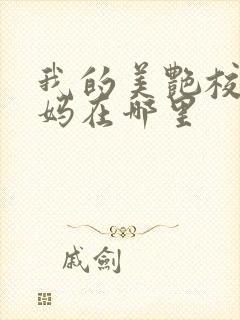 我的美艷校
妈在哪里
戚劍